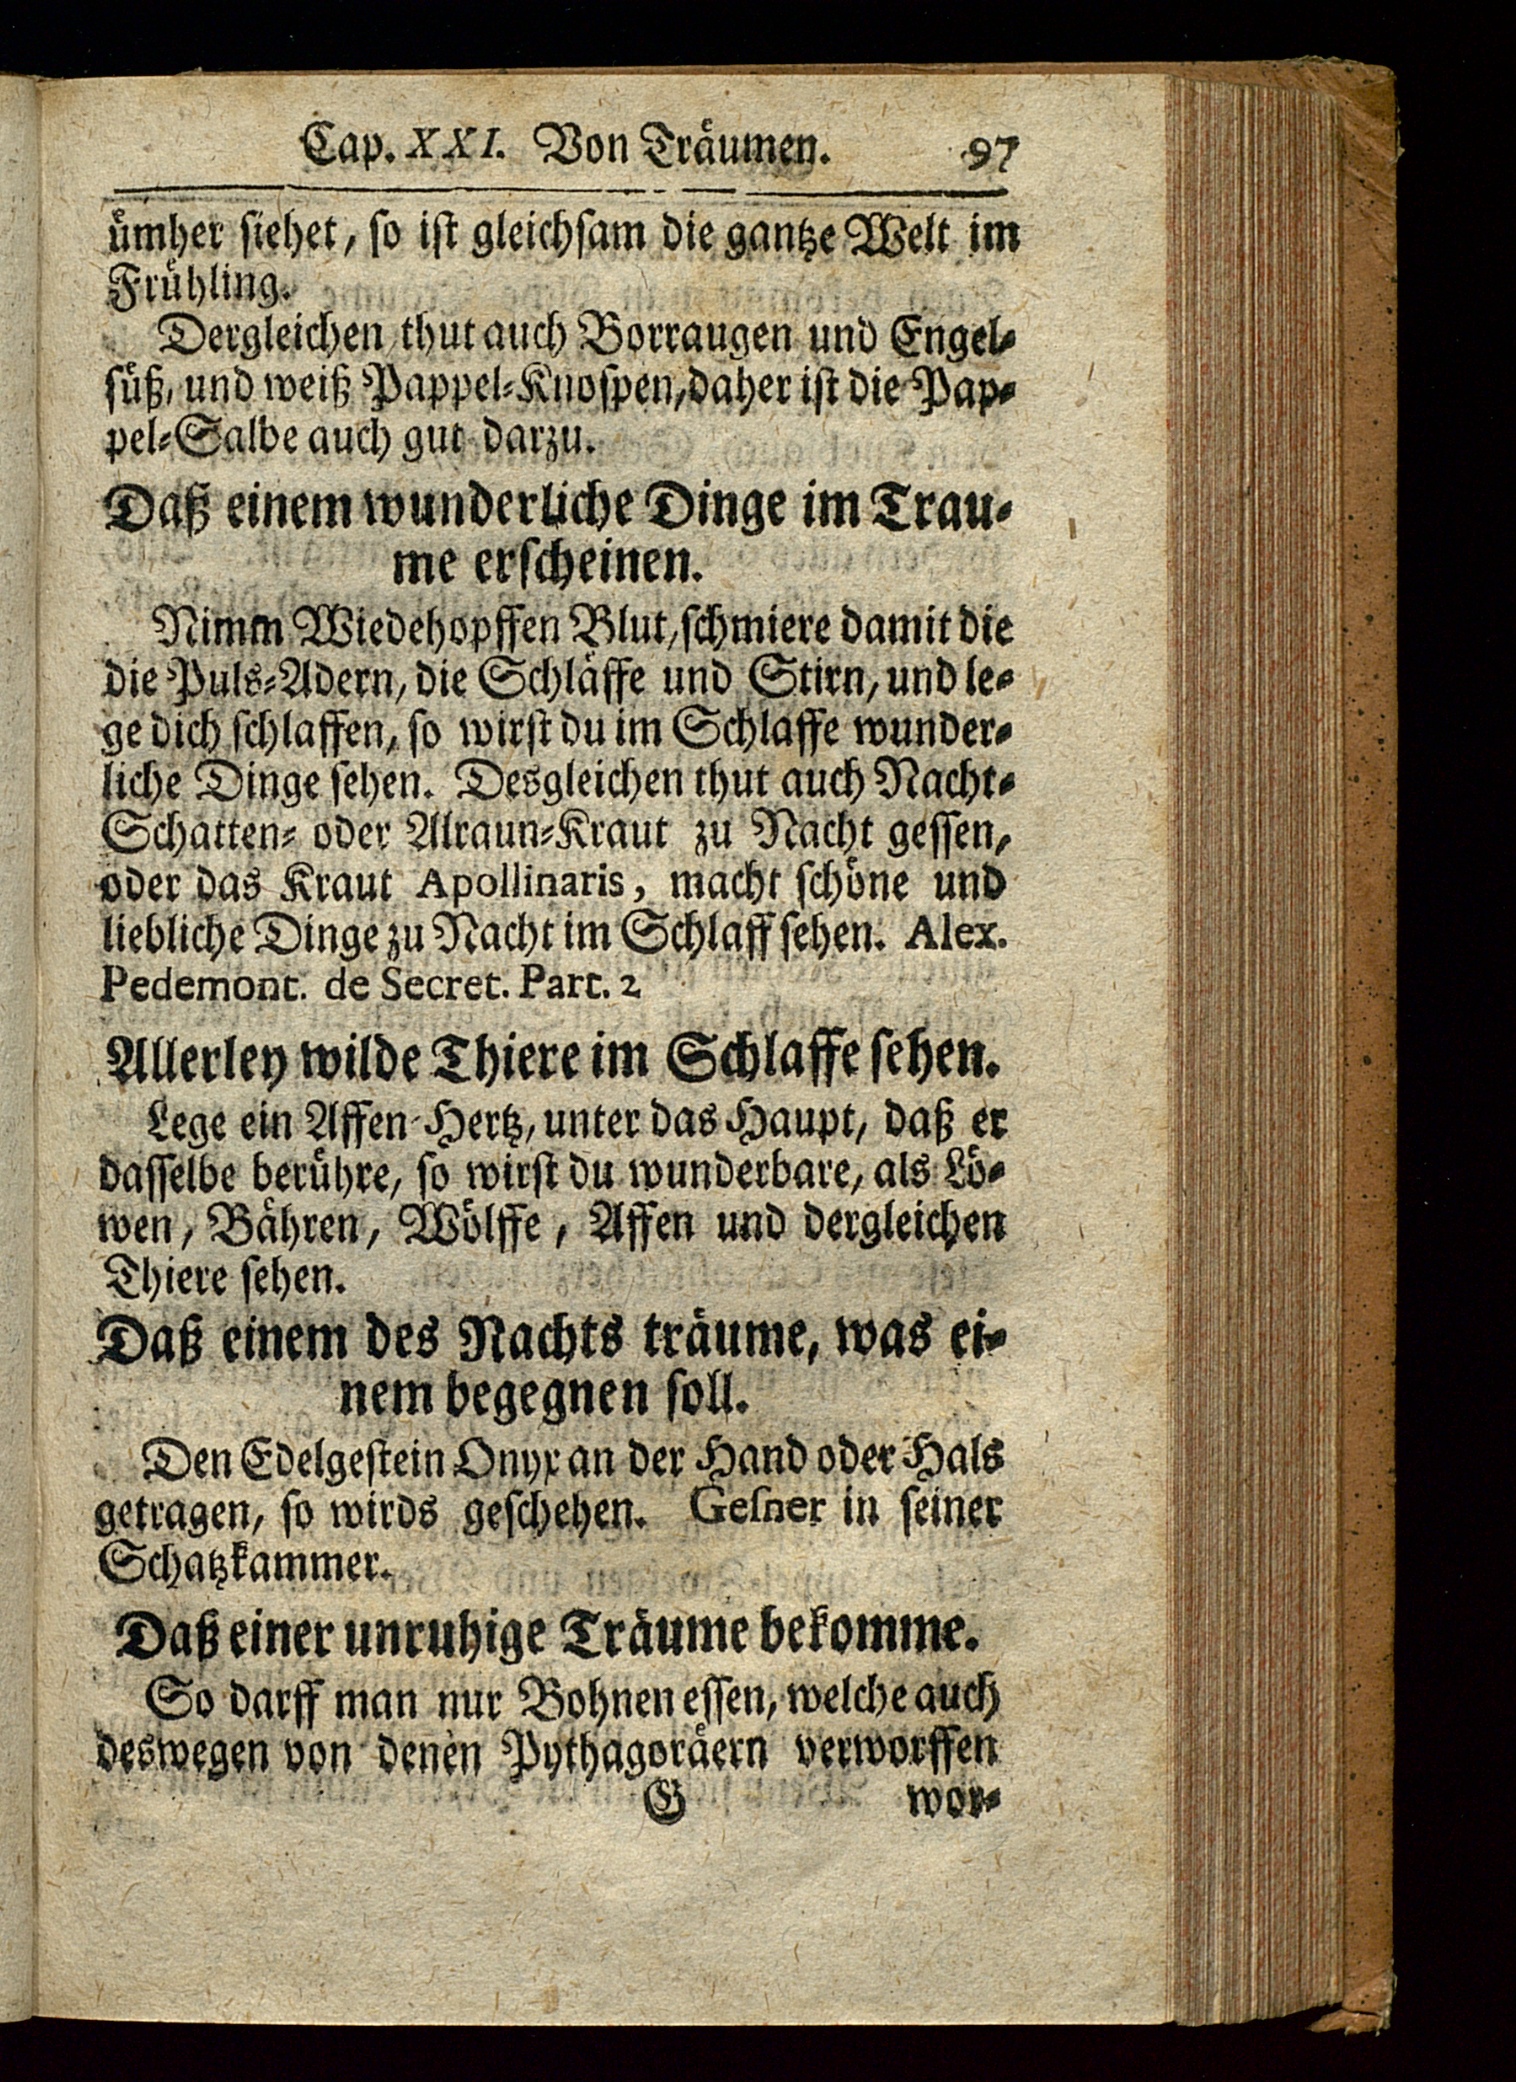 Cap. XXI. Von Träumen. 97
ümher siehet, so ist gleichsam die gantze Welt im
Frühling.
Dergleichen thut auch Borraugen und Engel-
süß, und weiß Pappel-Knospen, daher ist die Pap-
pel-Salbe auch gut darzu.
Daß einem wunderliche Dinge im Trau-
me erscheinen.
Nimm Wiedehopffen Blut, schmiere damit die
die Puls-Adern, die Schläffe und Stirn, und le-
ge dich schlaffen, so wirst du im Schlaffe wunder-
liche Dinge sehen. Desgleichen thut auch Nacht-
Schatten- oder Alraun-Kraut zu Nacht gessen,
oder das Kraut Apollinaris, macht schöne und
liebliche Dinge zu Nacht im Schlaff sehen. Alex.
Pedemont. de Secret. Part. 2
Allerley wilde Thiere im Schlaffe sehen.
Lege ein Affen-Hertz, unter das Haupt, daß er
dasselbe berühre, so wirst du wunderbare, als Lö-
wen, Bähren, Wölffe, Affen und dergleichen
Thiere sehen.
Daß einem des Nachts träume, was ei-
nem begegnen soll.
Den Edelgestein Onyx an der Hand oder Hals
getragen, so wirds geschehen. Gesner in seiner
Schatzkammer.
Daß einer unruhige Träume bekomme.
So darff man nur Bohnen essen, welche auch
deswegen von denen Pythagoräern verworffen
G wor-